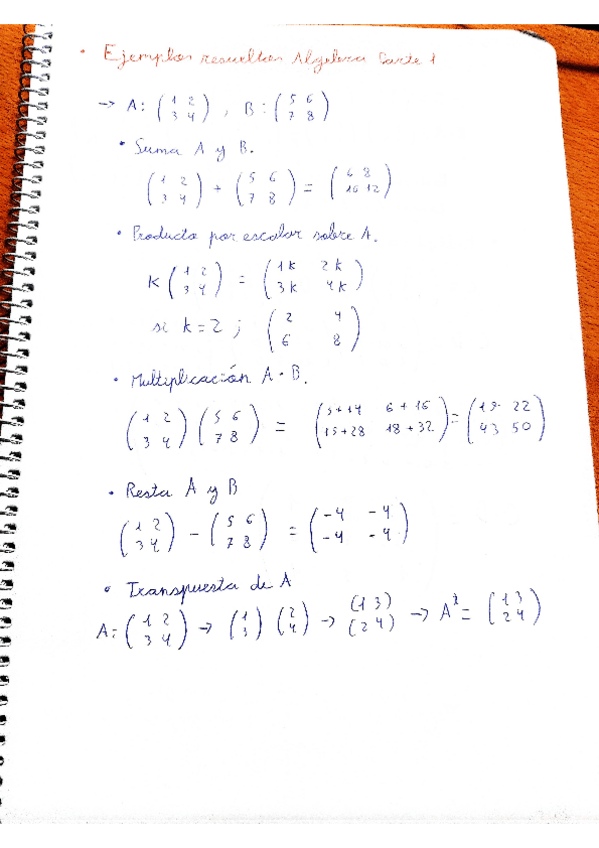 • Ejemplos resueltos Algebra Parte 1
→ A: (1 2 / 3 4), B: (5 6 / 7 8)
• Suma A y B.
(1 2 / 3 4) + (5 6 / 7 8) = (6 8 / 10 12)
• Producto por escalar sobre A.
K (1 2 / 3 4) = (1k 2k / 3k 4k)
si k=2 ; (2 4 / 6 8)
• Multiplicación A · B.
(1 2 / 3 4) (5 6 / 7 8) = (5+14 6+16 / 15+28 18+32) = (19 22 / 43 50)
• Resta A y B
(1 2 / 3 4) - (5 6 / 7 8) = (-4 -4 / -4 -4)
• Transpuesta de A
A: (1 2 / 3 4) → (1 / 3) (2 / 4) → (1 3) / (2 4) → A^t = (1 3 / 2 4)